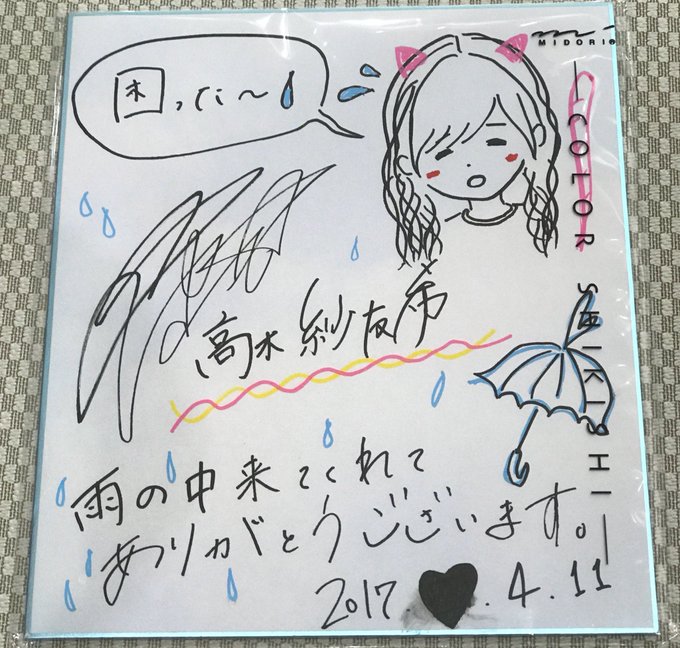 困ったに〜
MIDORI®
COLOR SHIKISHI
高木紗友希
雨の中来てくれて
ありがとうございます。
2017 ♥.4.11